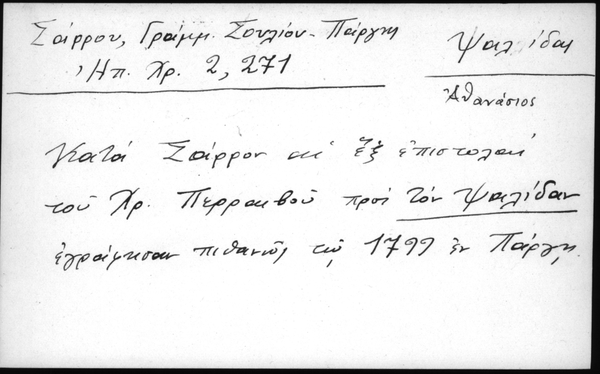 Σάρρου, Γράμμ. Σουλίου - Πάργης
Ἠπ. Χρ. 2, 271
Ψαλίδας
Ἀθανάσιος
Κατά Σάρρον αἱ ἕξ ἐπιστολαί
τοῦ Χρ. Περραιβοῦ πρός τόν Ψαλίδαν
ἐγράφησαν πιθανῶς τῷ 1799 ἐν Πάργῃ